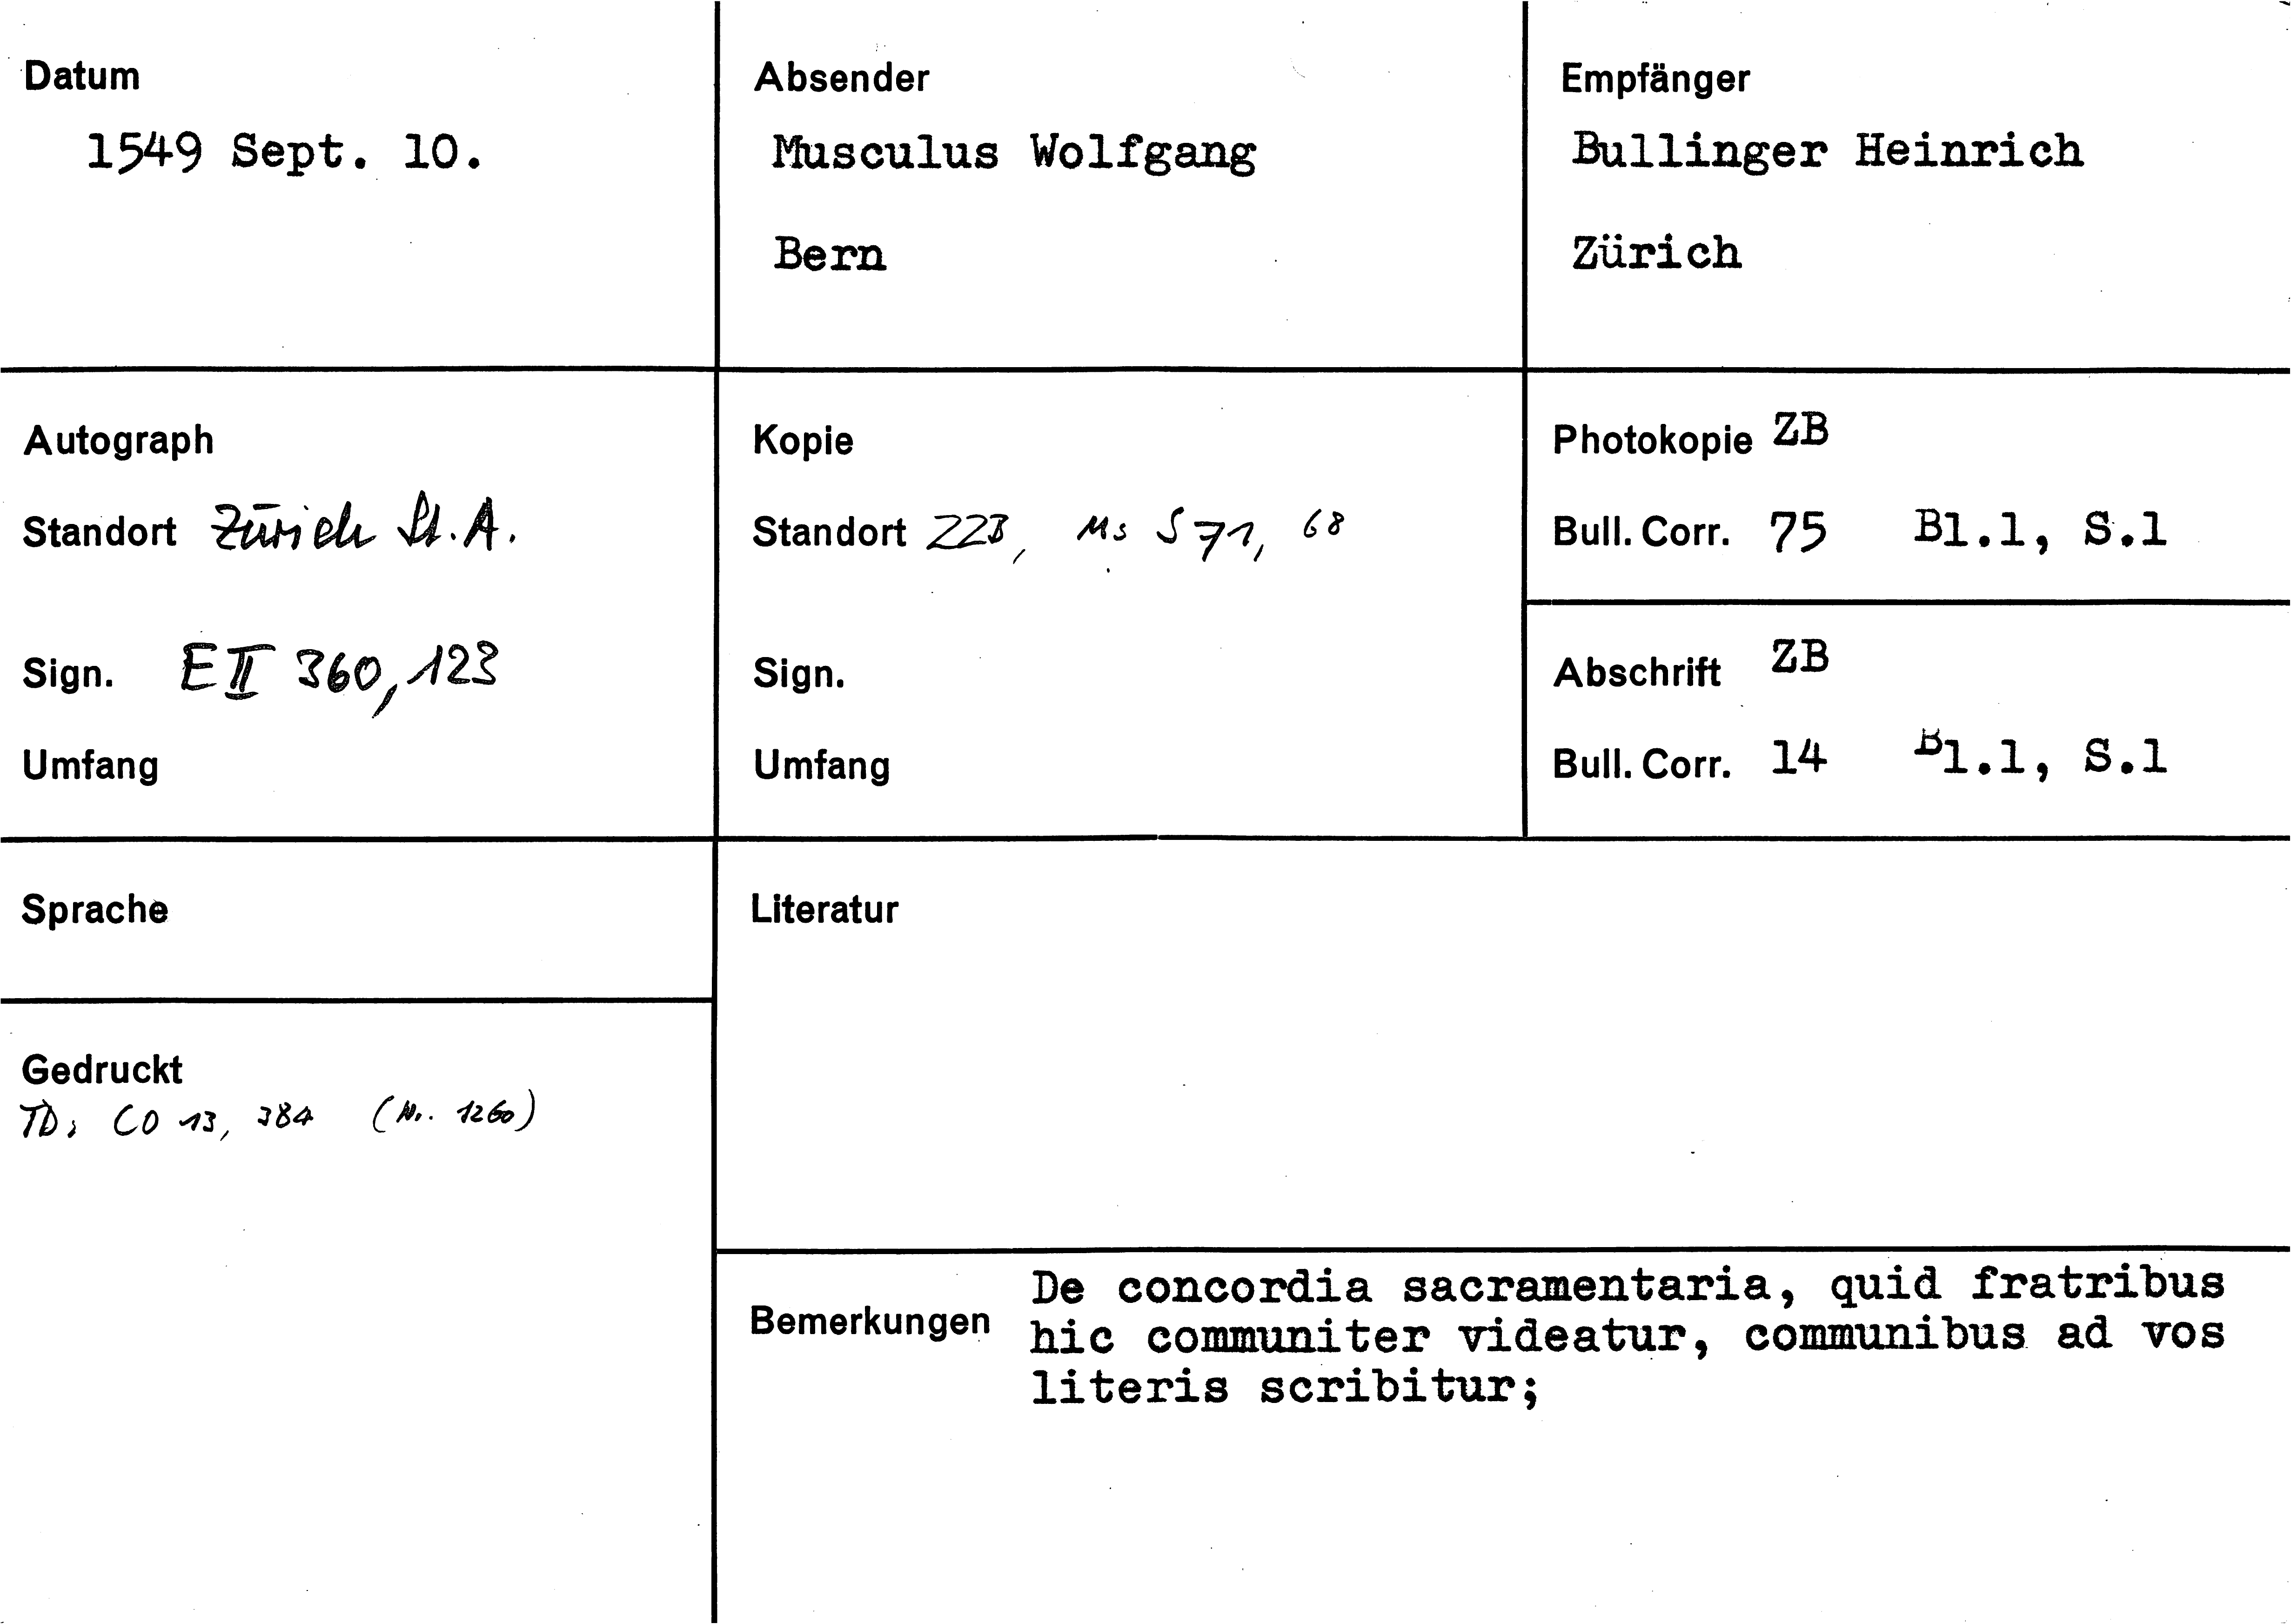 Datum
1549 Sept. 10.
Absender
Musculus Wolfgang
Bern
Empfänger
Bullinger Heinrich
Zürich
Autograph
Standort Zürich St. A.
Sign. E II 360, 123
Umfang
Kopie
Standort ZZB, Ms S 71, 68
Sign.
Umfang
Photokopie ZB
Bull. Corr. 75 Bl.1, S.1
Abschrift ZB
Bull. Corr. 14 Bl.1, S.1
Sprache
Gedruckt
TD: CO 13, 384 (Nr. 1260)
Literatur
Bemerkungen De concordia sacramentaria, quid fratribus
hic communiter videatur, communibus ad vos
literis scribitur;